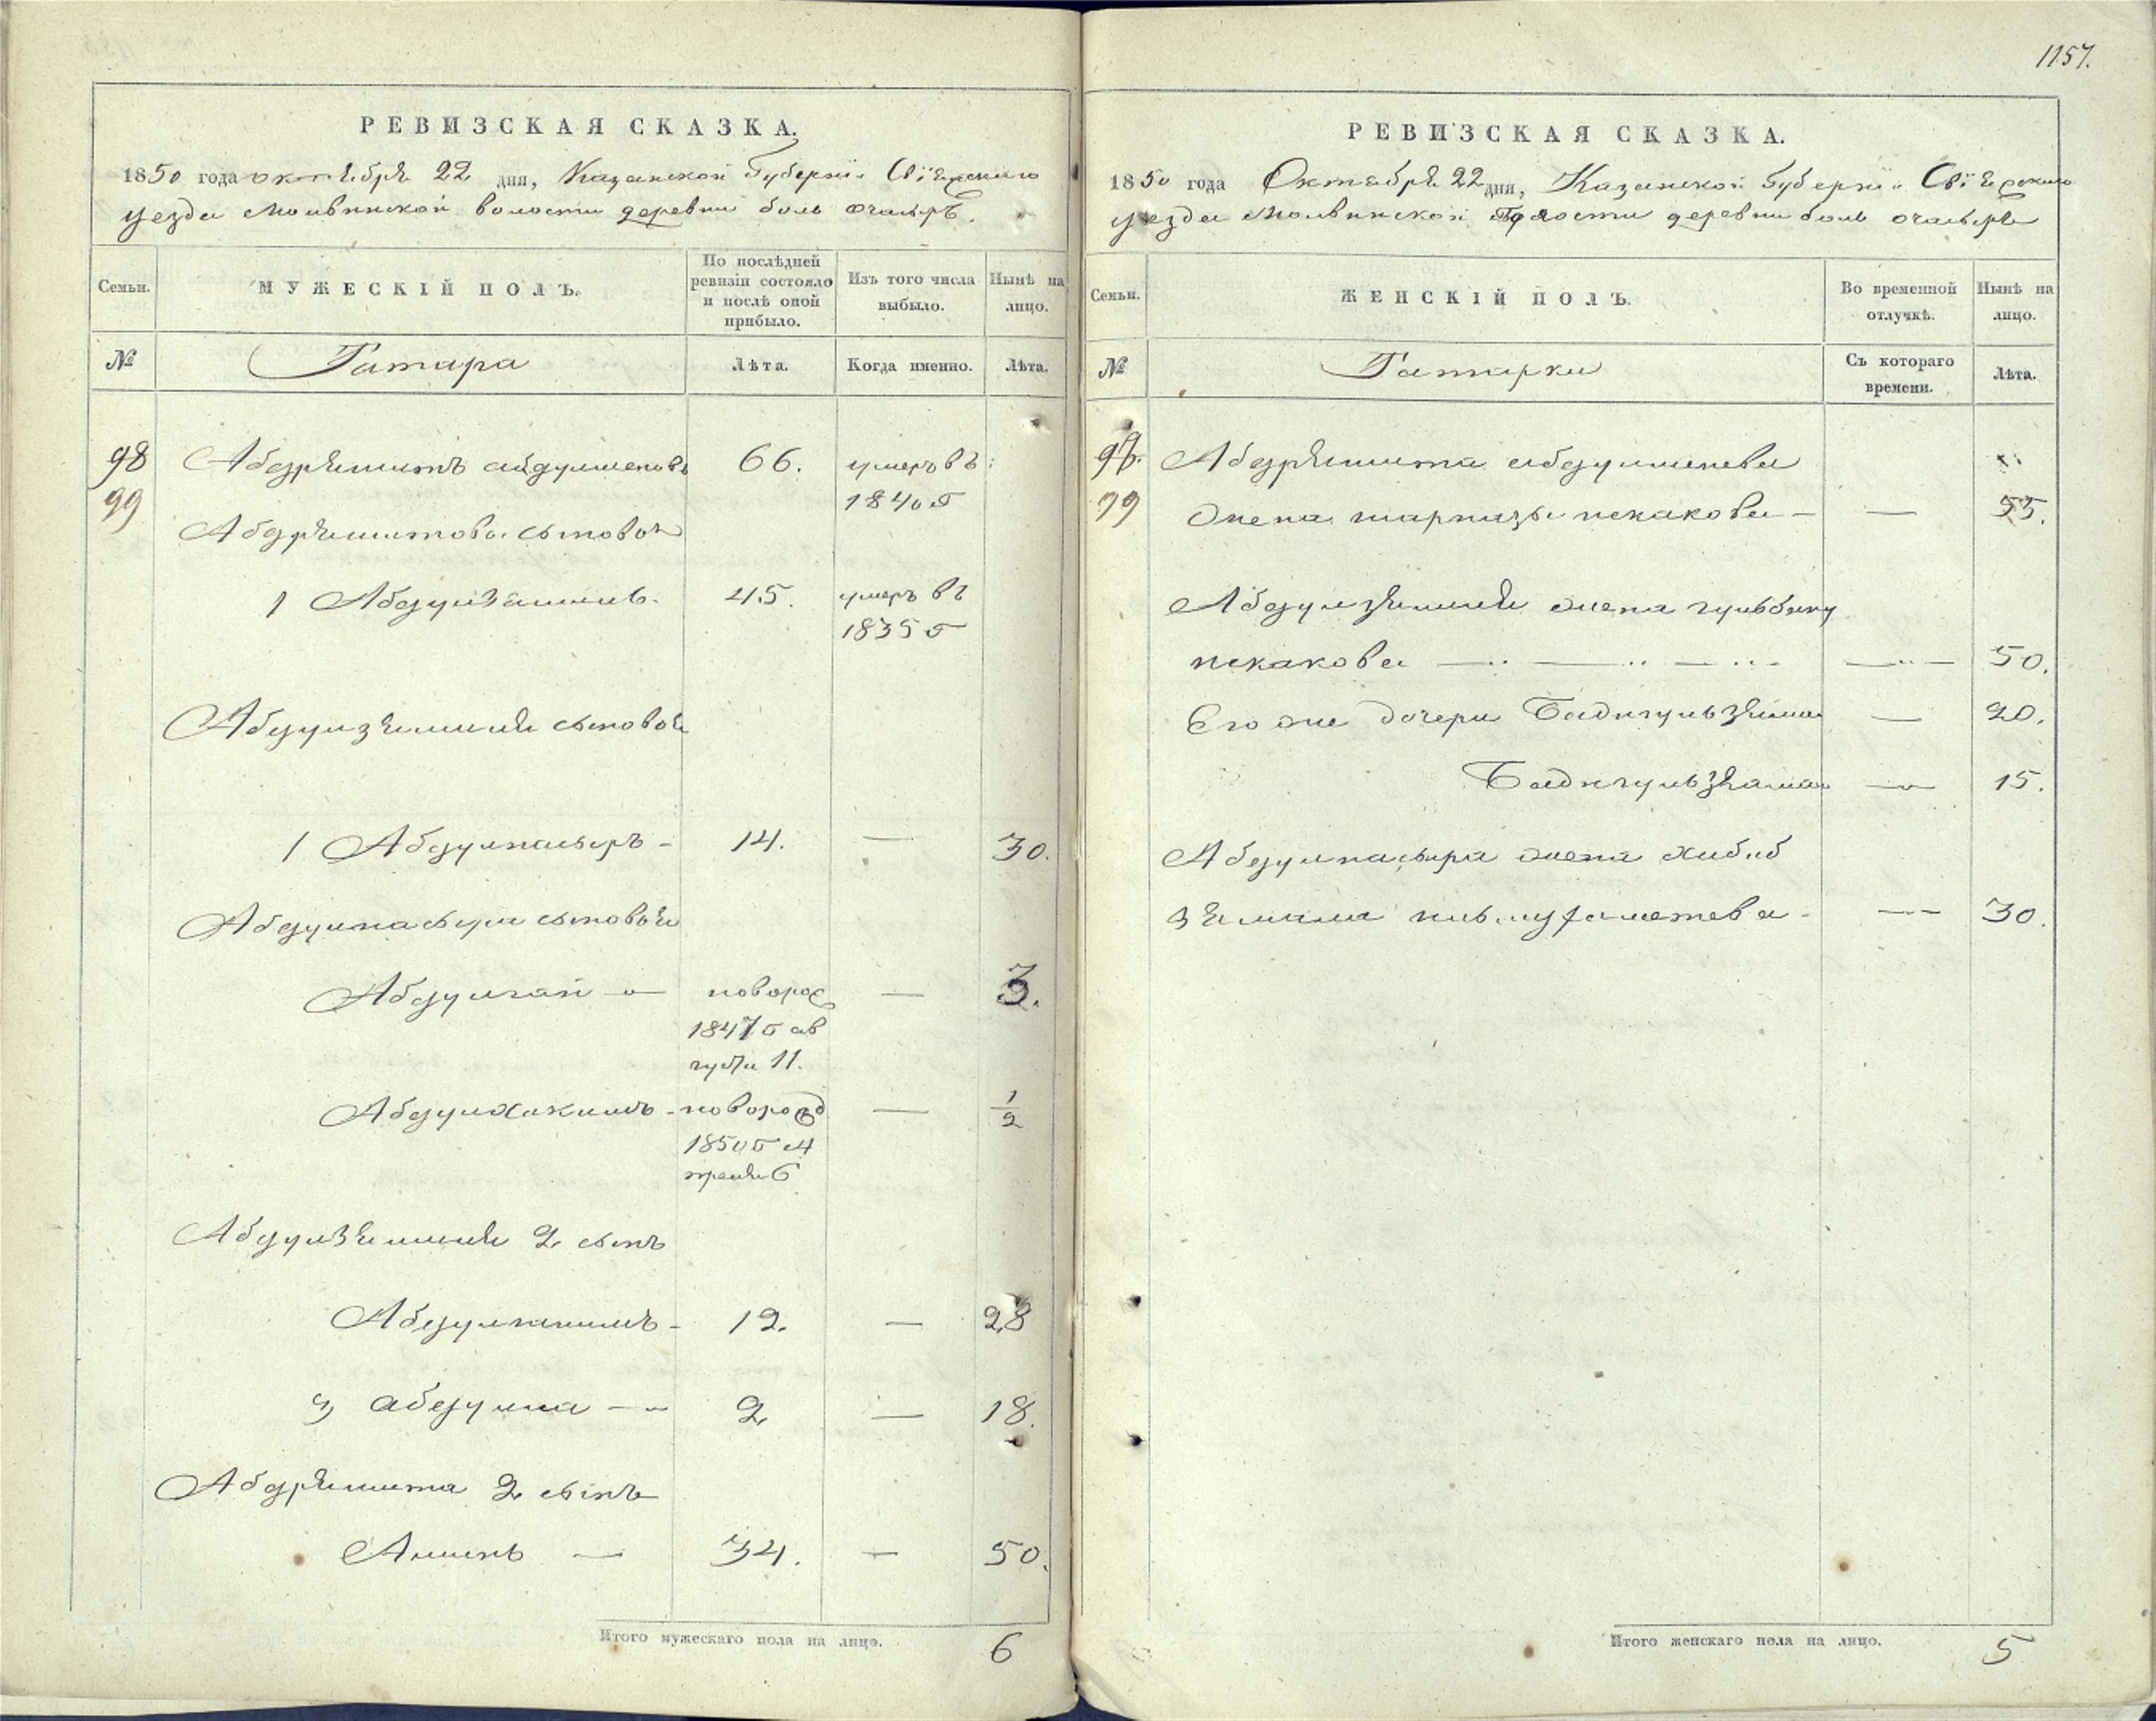 1157.
РЕВИЗСКАЯ СКАЗКА.
1850 года октября 22 дня, Казанской Губернїи Свїяжского
уезда Молвинской волости деревни боль очасырь.
Семьи.
МУЖЕСКІЙ ПОЛЪ.
По послѣдней ревизіи состояло и послѣ оной прибыло.
Изъ того числа выбыло.
Нынѣ на лицо.
№
Татара
Лѣта.
Когда именно.
Лѣта.
98 Абдряшитъ абдулменовъ 66. умеръ въ
99 1840 г
Абдряшитова сыновья
1 Абдулзямиль 45. умеръ въ
1835 г
Абдулзямиля сыновья
1 Абдулнасыръ - 14. — 30.
Абдулнасыра сыновья
Абдулгай — новорож — 3.
1847 г ав
густа 11.
Абдулхакимъ - новорожд — 1/2
1850 г
6
Абдулзямиля 2 сынъ
12. — 28
3 абдулла — 2 — 18.
Абдряшита 2 сынъ
Аминь — 34. — 50.
Итого мужескаго пола на лицо. 6
РЕВИЗСКАЯ СКАЗКА.
1850 года Октября 22 дня, Казанской Губернїи Свїяжского
уезда Молвинской волости деревни боль очасырь
Семьи.
ЖЕНСКІЙ ПОЛЪ.
Во временной отлучкѣ.
Нынѣ на лицо.
№
Татарки
Съ котораго времени.
Лѣта.
98. Абдряшита абдулменева
99 Жена искакова — — 55.
Абдулзямиля жена гульбану
искакова — — 50.
Его же дочери Бадигульзямал — 20.
Бадигульзямал — 15.
Абдулнасыра жена хабиб
зямала — 30.
Итого женскаго пола на лицо. 5